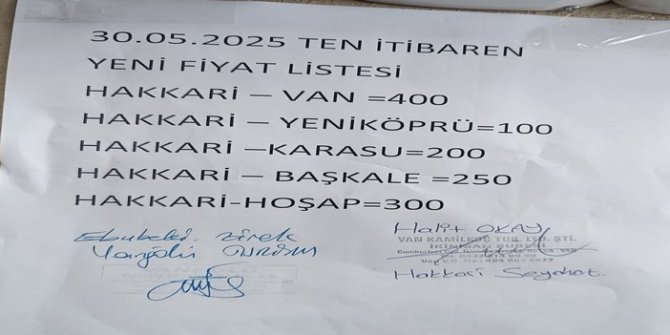 30.05.2025 TEN İTİBAREN
YENİ FİYAT LİSTESİ
HAKKARİ – VAN =400
HAKKARİ – YENİKÖPRÜ=100
HAKKARİ –KARASU=200
HAKKARİ – BAŞKALE =250
HAKKARİ-HOŞAP=300
Halit OKAY
VAN KAMİLKOÇ TUR. LTD. ŞTİ.
Hakkari Seyahat